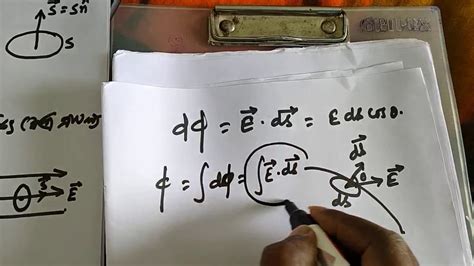 S⃗ = Sn̂
S
dϕ = E⃗ · ds⃗ = E ds cos θ.
ϕ = ∫dϕ = ∫E⃗ · ds⃗
ds⃗
θ
E⃗
ds
S⃗
E⃗